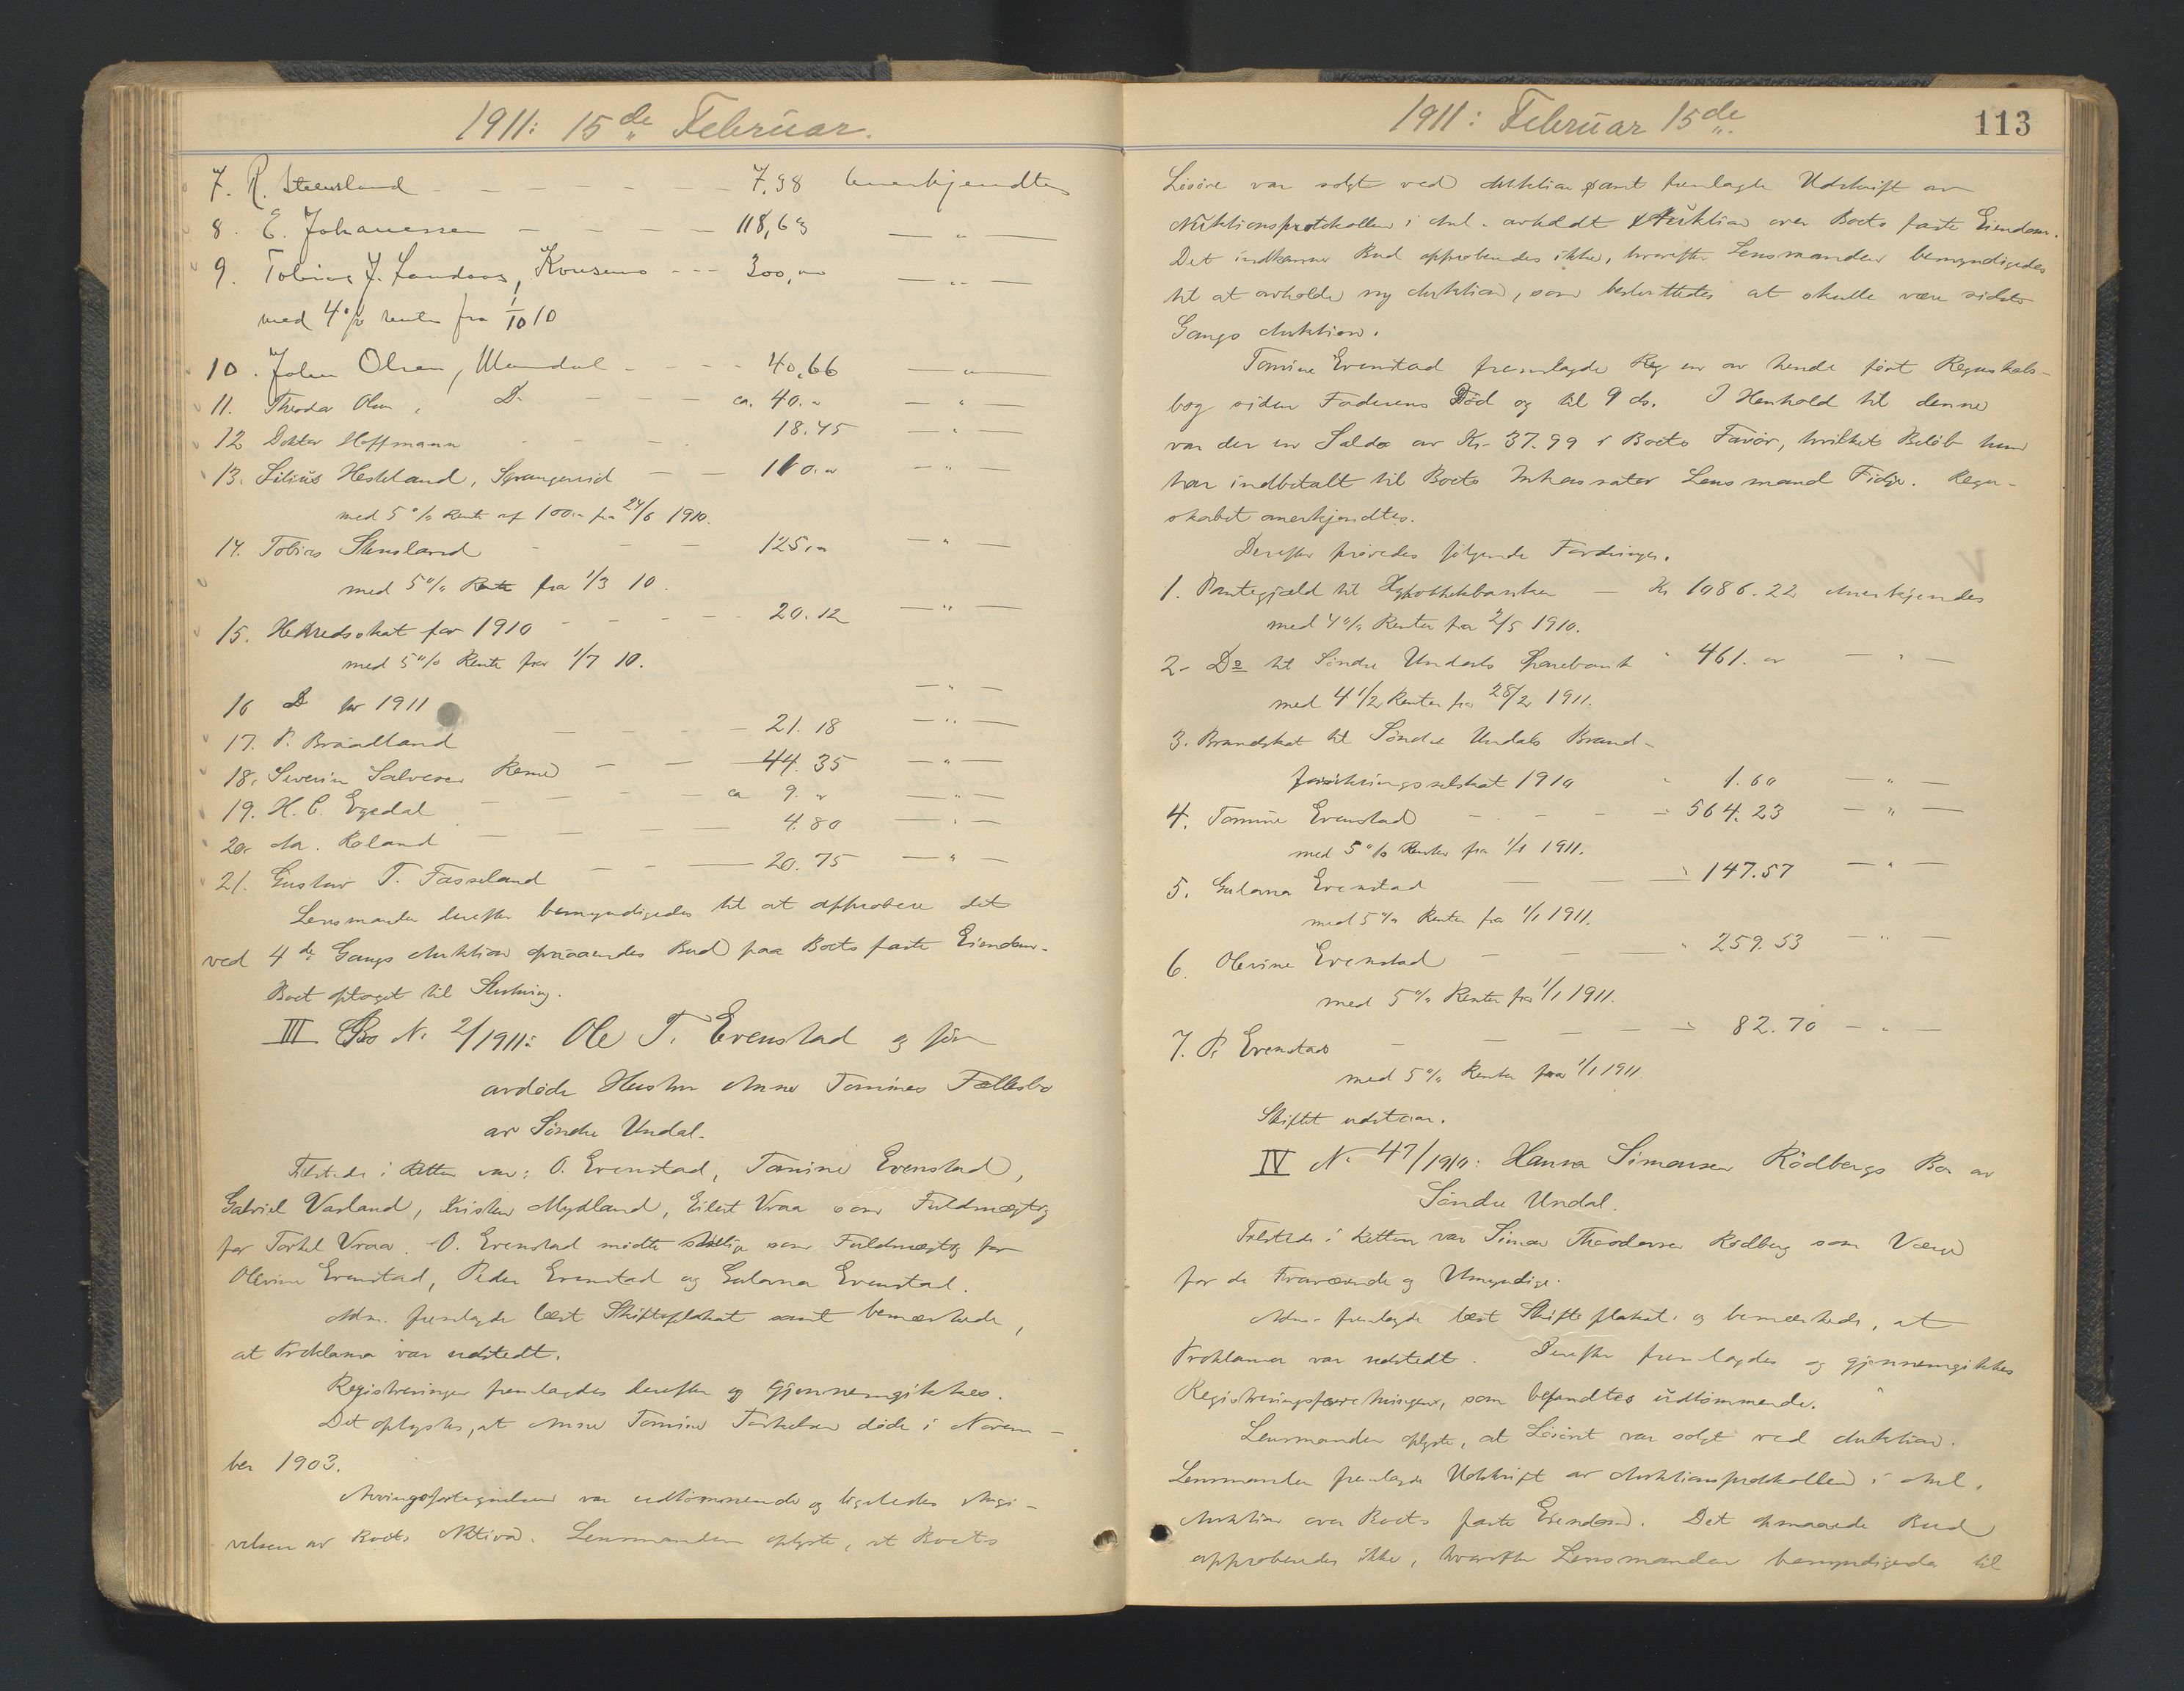 1911: 15de Februar.
7. R. Stensland - - - - - 7,98 Anerkjendtes
8. E. Johanessen - - - - 118,63 — " —
9. Tobias J. Landaas, - - - 300,00 — " —
med 4% renter fra 1/10 10
10. John Olsen, Mandal - - - 40,66 — " —
11. Theodor Olsen, Do - - - ca. 40.- — " —
12 Doktor Hoffmann - - - 18.45 — " —
13. Hesteland, Spangereid — — 110.00 — " —
med 5% Rente af 100.00 fra 24/6 1910.
14. Tobias Stensland - - - 125,00 — " —
med 5% Rente fra 1/3 10.
15. Herredsskat for 1910 - - - - 20.12 — " —
med 5% Rente fra 1/7 10.
16 Do for 1911 — " —
17. P. Braadland — - - - 21.18 — " —
18. Severin Salvesen Reme — — 44.35 — " —
19. H. C. Egedal — - - ca 9.- — " —
20. M. Roland — — — 4.80 — " —
21. Gustav T. Fasseland — - — 20.75 — " —
Lensmanden derefter bemyndigedes til at approbere det
ved 4de Gangs Auktion opnaaendes Bud paa Boets faste Eiendom.
Boet optaget til Slutning.
III Bo No 2/1911: Ole T. Evenstad og før
avdøde Hustru Anne Tomines Fællesbo
av Søndre Undal.
Tilstede i Retten var: O. Evenstad, Tomine Evenstad,
Gabriel Vasland, Kristen Mydland, Eilert Vraa som Fuldmægtig
for Torkel Vraa. O. Evenstad mødte tillige som Fuldmægtig for
Olevine Evenstad, Peder Evenstad og Gulama Evenstad.
Adm. fremlagde læst Skifteplakat samt bemærkede,
at Proklama var udstedt.
Registreringen fremlagdes derefter og gjennemgikkes.
Det oplystes, at Anne Tomine Torkelsen døde i Novem-
ber 1903.
Arvingsfortegnelsen var udtømmende og ligeledes Angi-
velsen av Boets Aktiva. Lensmanden oplyste, at Boets

1911: Februar 15de
113
Løsøre var solgt ved Auktion samt fremlagde Udskrift av
Auktionsprotokollen i Anl. avholdt Auktion over Boets faste Eiendom.
Det indkomne Bud approberedes ikke, hvorefter Lensmanden bemyndigedes
til at avholde ny Auktion, som besluttedes at skulle være sidste
Gangs Auktion.
Tomine Evenstad fremlagde en av hende ført Regnskabs-
bog siden Faderens Død og til 9 ds. I Henhold til denne
var der en Saldo av Kr. 37.99 i Boets Favør, hvilket Beløb hun
har indbetalt til Boets Inkassator Lensmand Fidje. Regn-
skabet anerkjendtes.
Derefter prøvedes følgende Fordringer.
1. Pantegjæld til Hypothekbanken — Kr 1086.22 Anerkjendes
med 4% Renter fra 2/5 1910.
2. Do til Søndre Undals Sparebank " 461.00 — " —
med 4 1/2 Renter fra 28/2 1911.
3. Brandskat til Søndre Undals Brand-
forsikringsselskab 1910 " 1.60 — " —
4. Tomine Evenstad - - - " 564.23 — " —
med 5% Renter fra 1/1 1911.
5. Gulama Evenstad — — " 147.57 — " —
med 5% Renter fra 1/1 1911.
6. Olevine Evenstad — — " 259.53 — " —
med 5% Renter fra 1/1 1911.
7. P. Evenstad - — — " 82.70 — " —
med 5% Renter fra 1/1 1911
Skiftet udstaar.
IV No 47/1910: Hanna Simonsen Rødbergs Bo av
Søndre Undal.
Tilstede i Retten var Simon Theodorsen Rødberg som Værge
for de Fraværende og Umyndige.
Adm. fremlagde læst Skifteplakat og bemærkede, at
Proklama var udstedt. Derefter fremlagdes og gjennemgikkes
Registreringsforretningen, som befandtes udtømmende.
Lensmanden oplyste, at Løsøret var solgt ved Auktion.
Lensmanden fremlagde Udskrift av Auktionsprotokollen i Anl.
Auktion over Boets faste Eiendom. Det opnaaede Bud
approberedes ikke, hvorefter Lensmanden bemyndigedes til